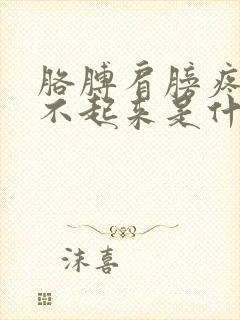 胳膊肩膀疼
不起来是什
沫喜